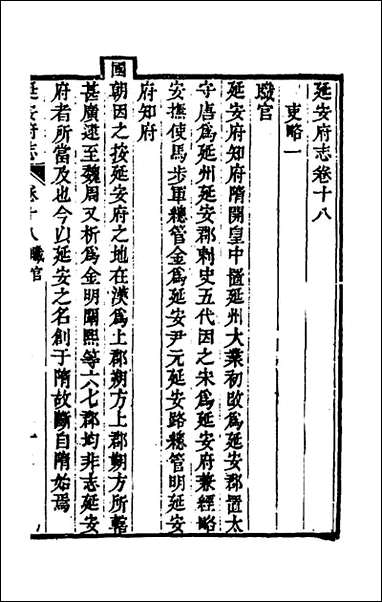 延安府志卷十八
吏略一
職官
延安府知府隋開皇中置延州大業初改為延安郡置太
守唐為延州延安郡刺史五代因之宋為延安府兼經略
安撫使馬步軍總管金為延安尹元延安路總管明延安
府知府
國朝因之按延安府之地在漢為上郡朔方上郡朔方所轄
甚廣逮至魏周又析為金明閿熙等六七郡均非志延安
府者所當及也今以延安之名創于隋故斷自隋始焉
延安府志 卷十八 職官 一